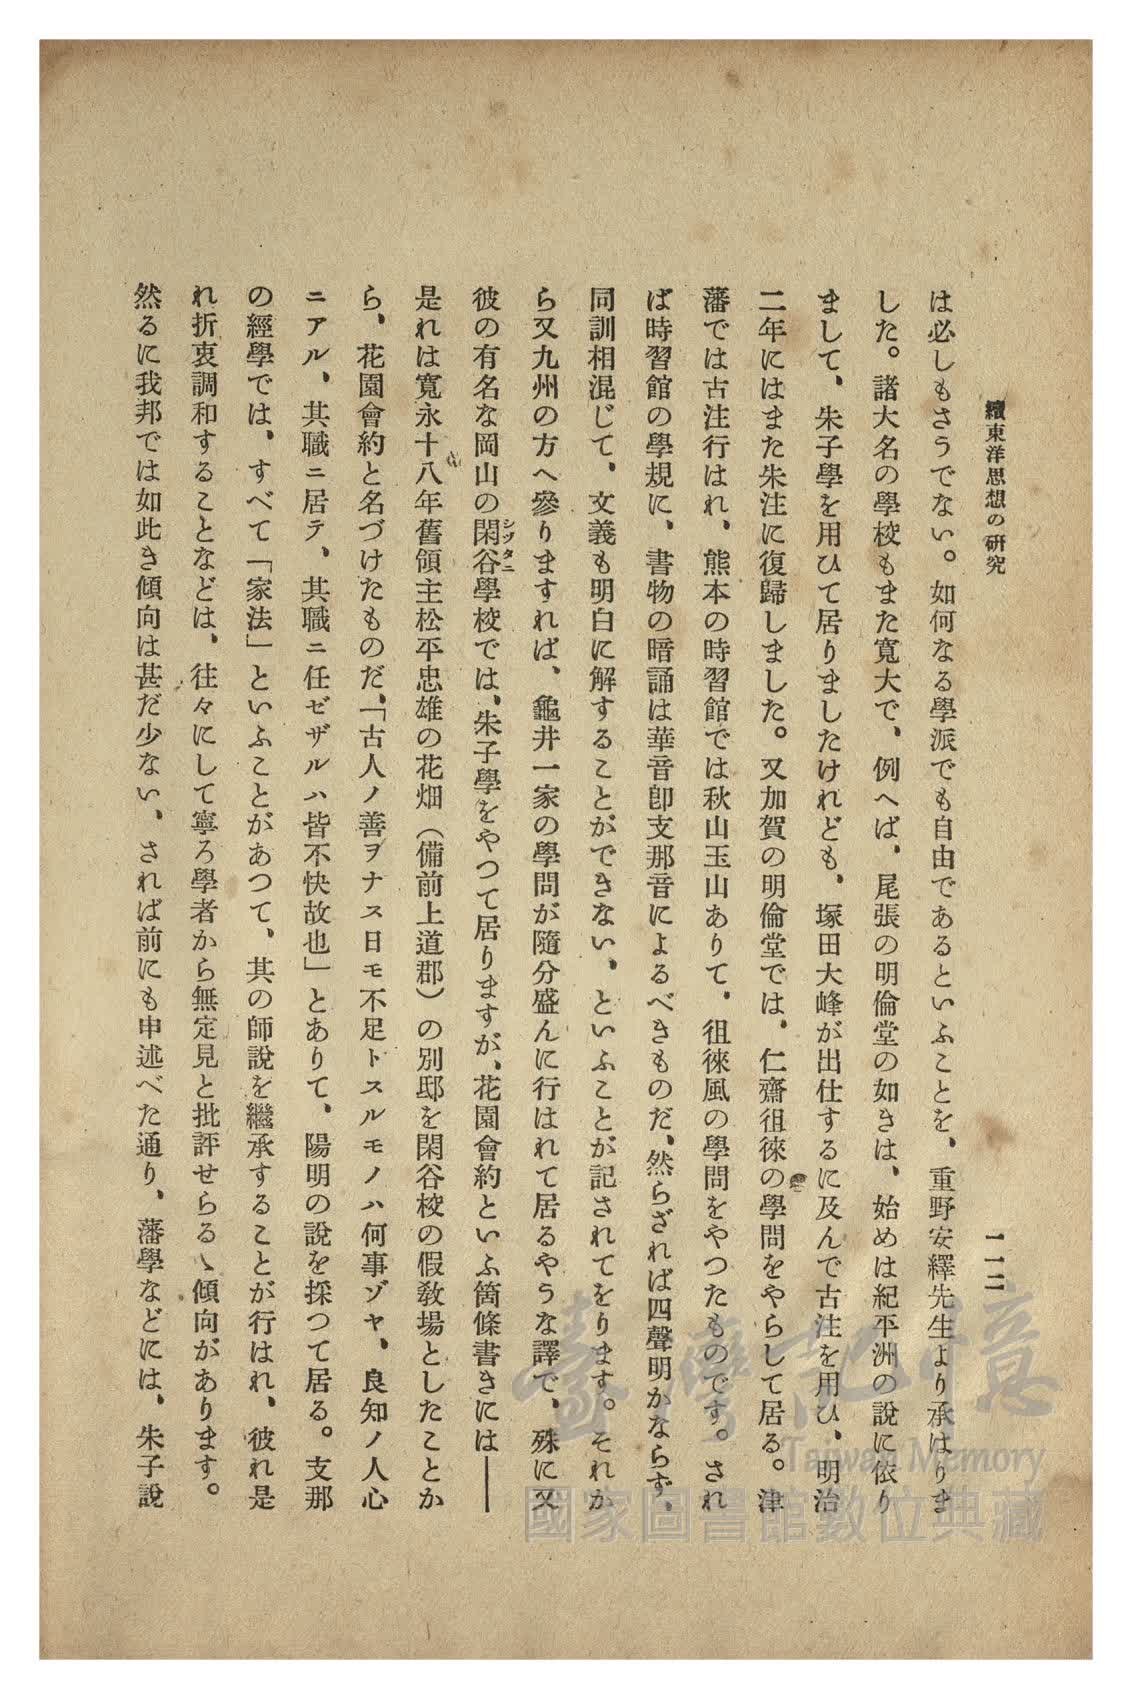 續東洋思想の研究
一一二
は必しもさうでない。如何なる學派でも自由であるといふことを、重野安繹先生より承はりま
した。諸大名の學校もまた寬大で、例へば、尾張の明倫堂の如きは、始めは紀平洲の說に依り
まして、朱子學を用ひて居りましたけれども、塚田大峰が出仕するに及んで古注を用ひ、明治
二年にはまた朱注に復歸しました。又加賀の明倫堂では、仁齋徂徠の學問をやらして居る。津
藩では古注行はれ、熊本の時習館では秋山玉山ありて、徂徠風の學問をやつたものです。され
ば時習館の學規に、書物の暗誦は華音卽支那音によるべきものだ、然らざれば四聲明かならず、
同訓相混じて、文義も明白に解することができない、といふことが記されてをります。それか
ら又九州の方へ參りますれば、龜井一家の學問が隨分盛んに行はれて居るやうな譯で、殊に又
彼の有名な岡山の閑谷學校では、朱子學をやつて居りますが、花園會約といふ箇條書きには――
シヅタニ
是れは寬永十八年舊領主松平忠雄の花畑（備前上道郡）の別邸を閑谷校の假敎場としたことか
ら、花園會約と名づけたものだ、「古人ノ善ヲナス日モ不足トスルモノハ何事ゾヤ、良知ノ人心
ニアル、其職ニ居テ、其職ニ任ゼザルハ皆不快故也」とありて、陽明の說を採つて居る。支那
の經學では、すべて「家法」といふことがあつて、其の師說を繼承することが行はれ、彼れ是
れ折衷調和することなどは、往々にして寧ろ學者から無定見と批評せらるゝ傾向があります。
然るに我邦では如此き傾向は甚だ少ない、されば前にも申述べた通り、藩學などには、朱子說
臺灣記憶
Taiwan Memory
國家圖書館數位典藏